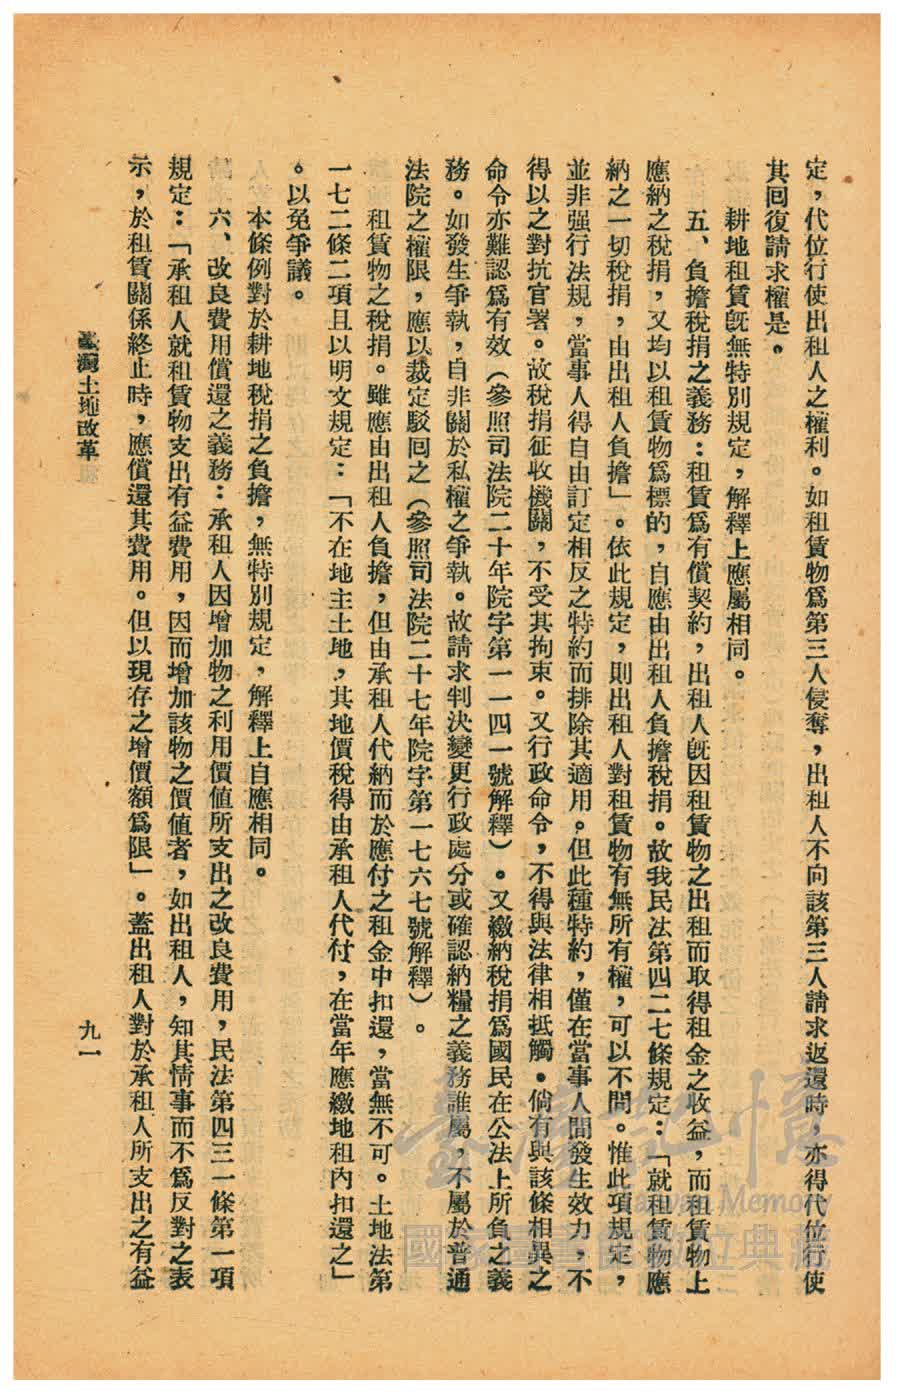 定，代位行使出租人之權利。如租賃物爲第三人侵奪，出租人不向該第三人請求返還時，亦得代位行使
其回復請求權是。
耕地租賃旣無特別規定，解釋上應屬相同。
五、負擔稅捐之義務：租賃爲有償契約，出租人旣因租賃物之出租而取得租金之收益，而租賃物上
應納之稅捐，又均以租賃物爲標的，自應由出租人負擔稅捐。故我民法第四二七條規定：「就租賃物應
納之一切稅捐，由出租人負擔」。依此規定，則出租人對租賃物有無所有權，可以不問。惟此項規定，
並非强行法規，當事人得自由訂定相反之特約而排除其適用。但此種特約，僅在當事人間發生效力，不
得以之對抗官署。故稅捐征收機關，不受其拘束。又行政命令，不得與法律相抵觸。倘有與該條相異之
命令亦難認爲有效（參照司法院二十年院字第一一四一號解釋）。又繳納稅捐爲國民在公法上所負之義
務。如發生爭執，自非關於私權之爭執。故請求判決變更行政處分或確認納糧之義務誰屬，不屬於普通
法院之權限，應以裁定駁回之（參照司法院二十七年院字第一七六七號解釋）。
租賃物之稅捐。雖應由出租人負擔，但由承租人代納而於應付之租金中扣還，當無不可。土地法第
一七二條二項且以明文規定：「不在地主土地，其地價稅得由承租人代付，在當年應繳地租內扣還之」
。以免爭議。
本條例對於耕地稅捐之負擔，無特別規定，解釋上自應相同。
六、改良費用償還之義務：承租人因增加物之利用價値所支出之改良費用，民法第四三一條第一項
規定：「承租人就租賃物支出有益費用，因而增加該物之價値者，如出租人，知其情事而不爲反對之表
示，於租賃關係終止時，應償還其費用。但以現存之增價額爲限」。蓋出租人對於承租人所支出之有益
臺灣土地改革
九一
臺灣記憶
Taiwan Memory
國家圖書館數位典藏